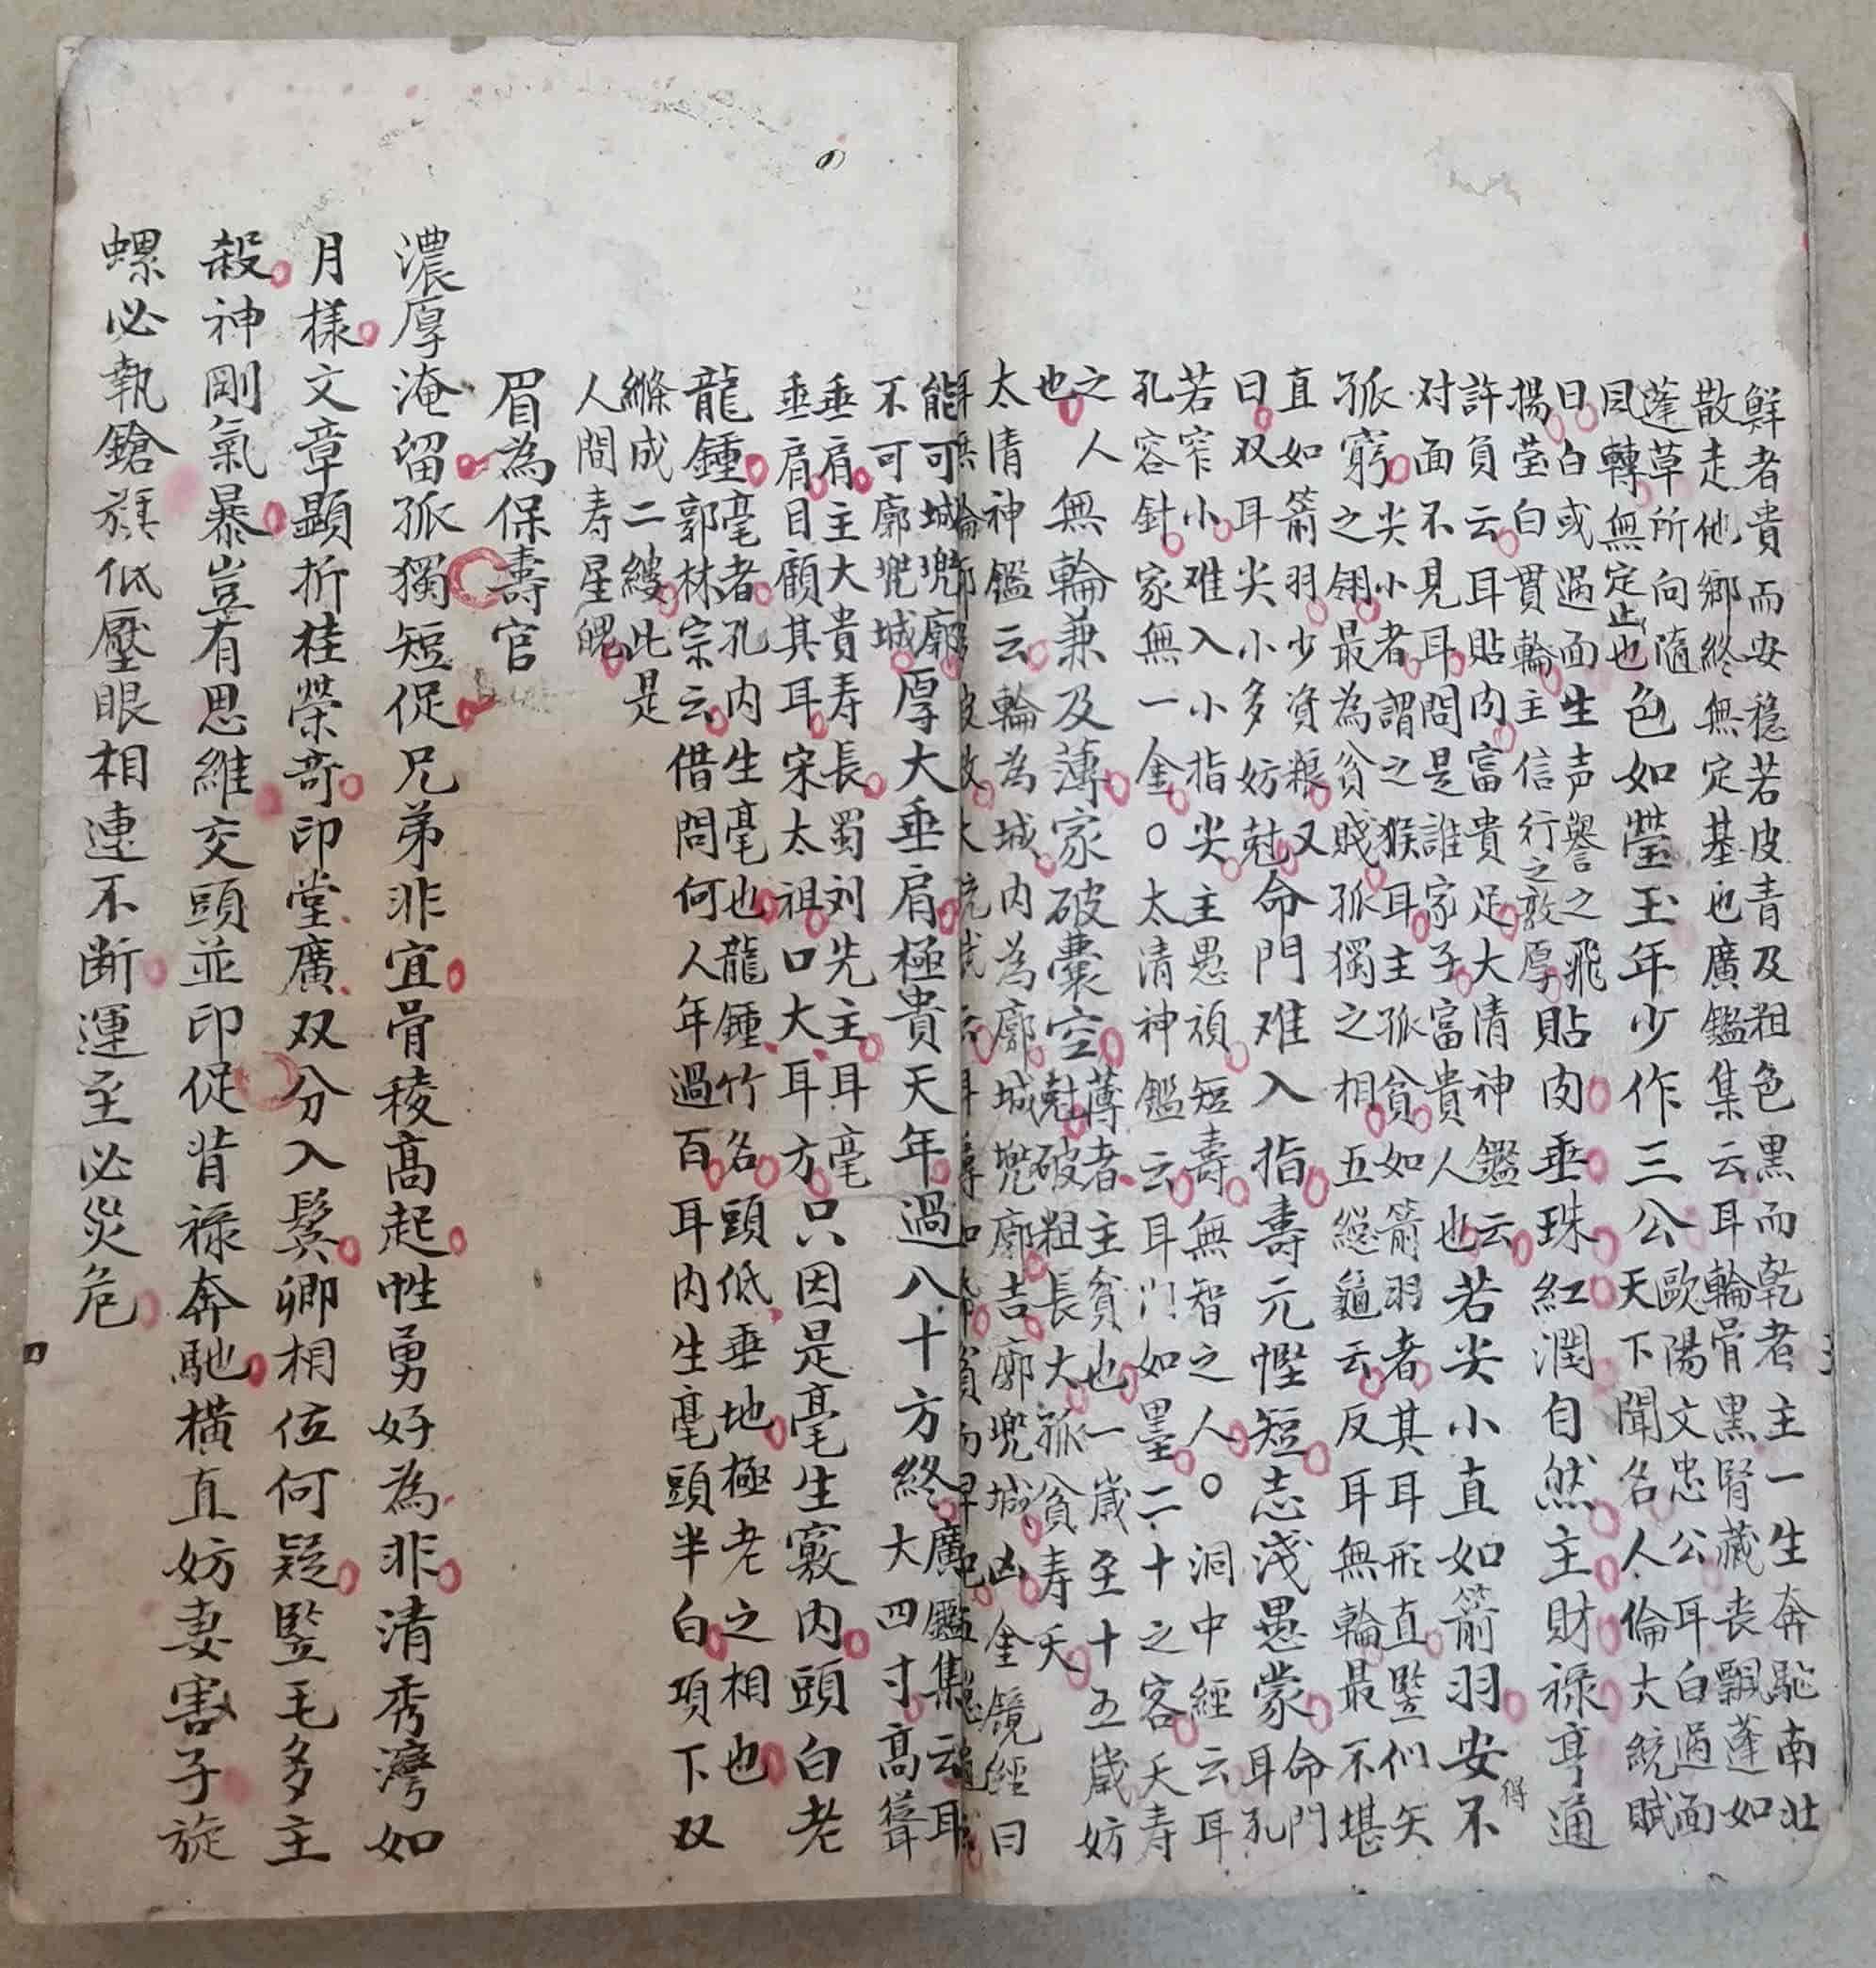 鮮者貴而安穩若皮青及粗色黑而乾者主一生奔馳南北
散走他鄉終無定基也廣鑑集云耳輪骨黑腎藏丧飄蓬如
蓬草所向隨
風轉無定止也
色如瑩玉年少作三公
歐陽文忠公耳白過面
天下聞名人倫大統賦
曰白或過面生声譽之飛
揚瑩白貫輪主信行之敦厚
貼肉垂珠紅潤自然主財禄亨通
許負云耳貼肉富貴足大清神鑑云
对面不見耳問是誰家子富貴人也
若尖小直如箭羽安不得
孤窮
尖小者謂之猴耳主孤貧如箭羽者其耳形直竪们矢
之翎最為貧賤孤獨之相五緫龜云反耳無輪最不堪
直如箭羽少資粮又
曰双耳尖小多妨尅
命門难入指壽元慳短志淺愚蒙
命門
耳孔
若窄小难入小指尖主愚頑短壽無智之人○洞中經云耳
孔容針家無一金○太清神鑑云耳门如墨二十之客夭寿
之人
也
無輪兼及薄家破囊空
薄者主貧也一歲至十五歲妨
尅破粗長大孤貧寿夭
太清神鑑云輪為城内為廓城兠廓吉廓兠城凶金鏡經曰
能可城兠廓
不可廓兠城
厚大垂肩極貴天年過八十方終
廣鑑集云耳
大四寸高聳
垂肩主大貴寿長蜀刘先主耳
垂肩目顧其耳宋太祖口大耳方
只因是毫生竅内頭白老
龍鍾
毫者孔内生毫也龍鍾竹名頭低垂地極老之相也
郭林宗云借問何人年過百耳内生毫頭半白項下双
縧成二縷此是
人間寿星魄
眉為保壽官
濃厚淹留孤獨短促兄弟非宜骨稜高起性勇好為非清秀灣如
月樣文章顯折桂荣奇印堂廣双分入鬂卿相位何疑竪毛多主
殺神剛氣暴豈有思維交頭並印促背禄奔馳横直妨妻害子旋
螺必執鎗旗低壓眼相連不断運至必災危